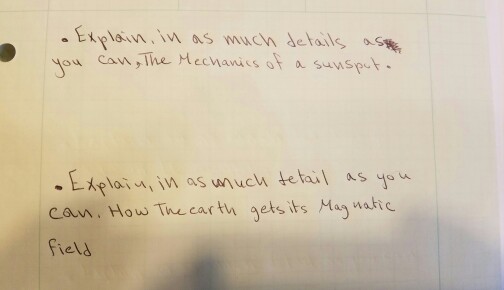 • Explain, in as much details as
you can, The Mechanics of a sunspot.
• Explain, in as much tetail as you
can. How The earth gets its Magnatic
field